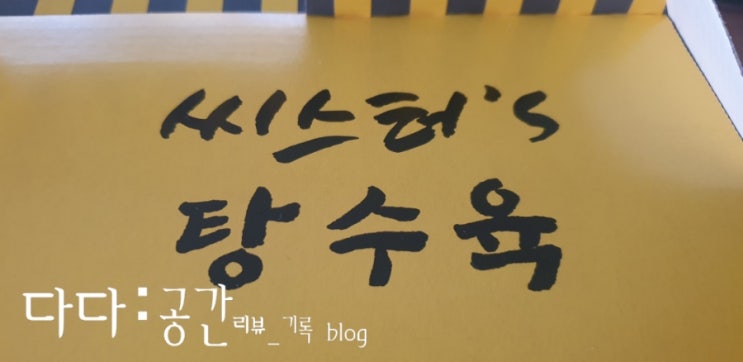 씨스터's
탕수육
다다:공간리뷰_기록 blog